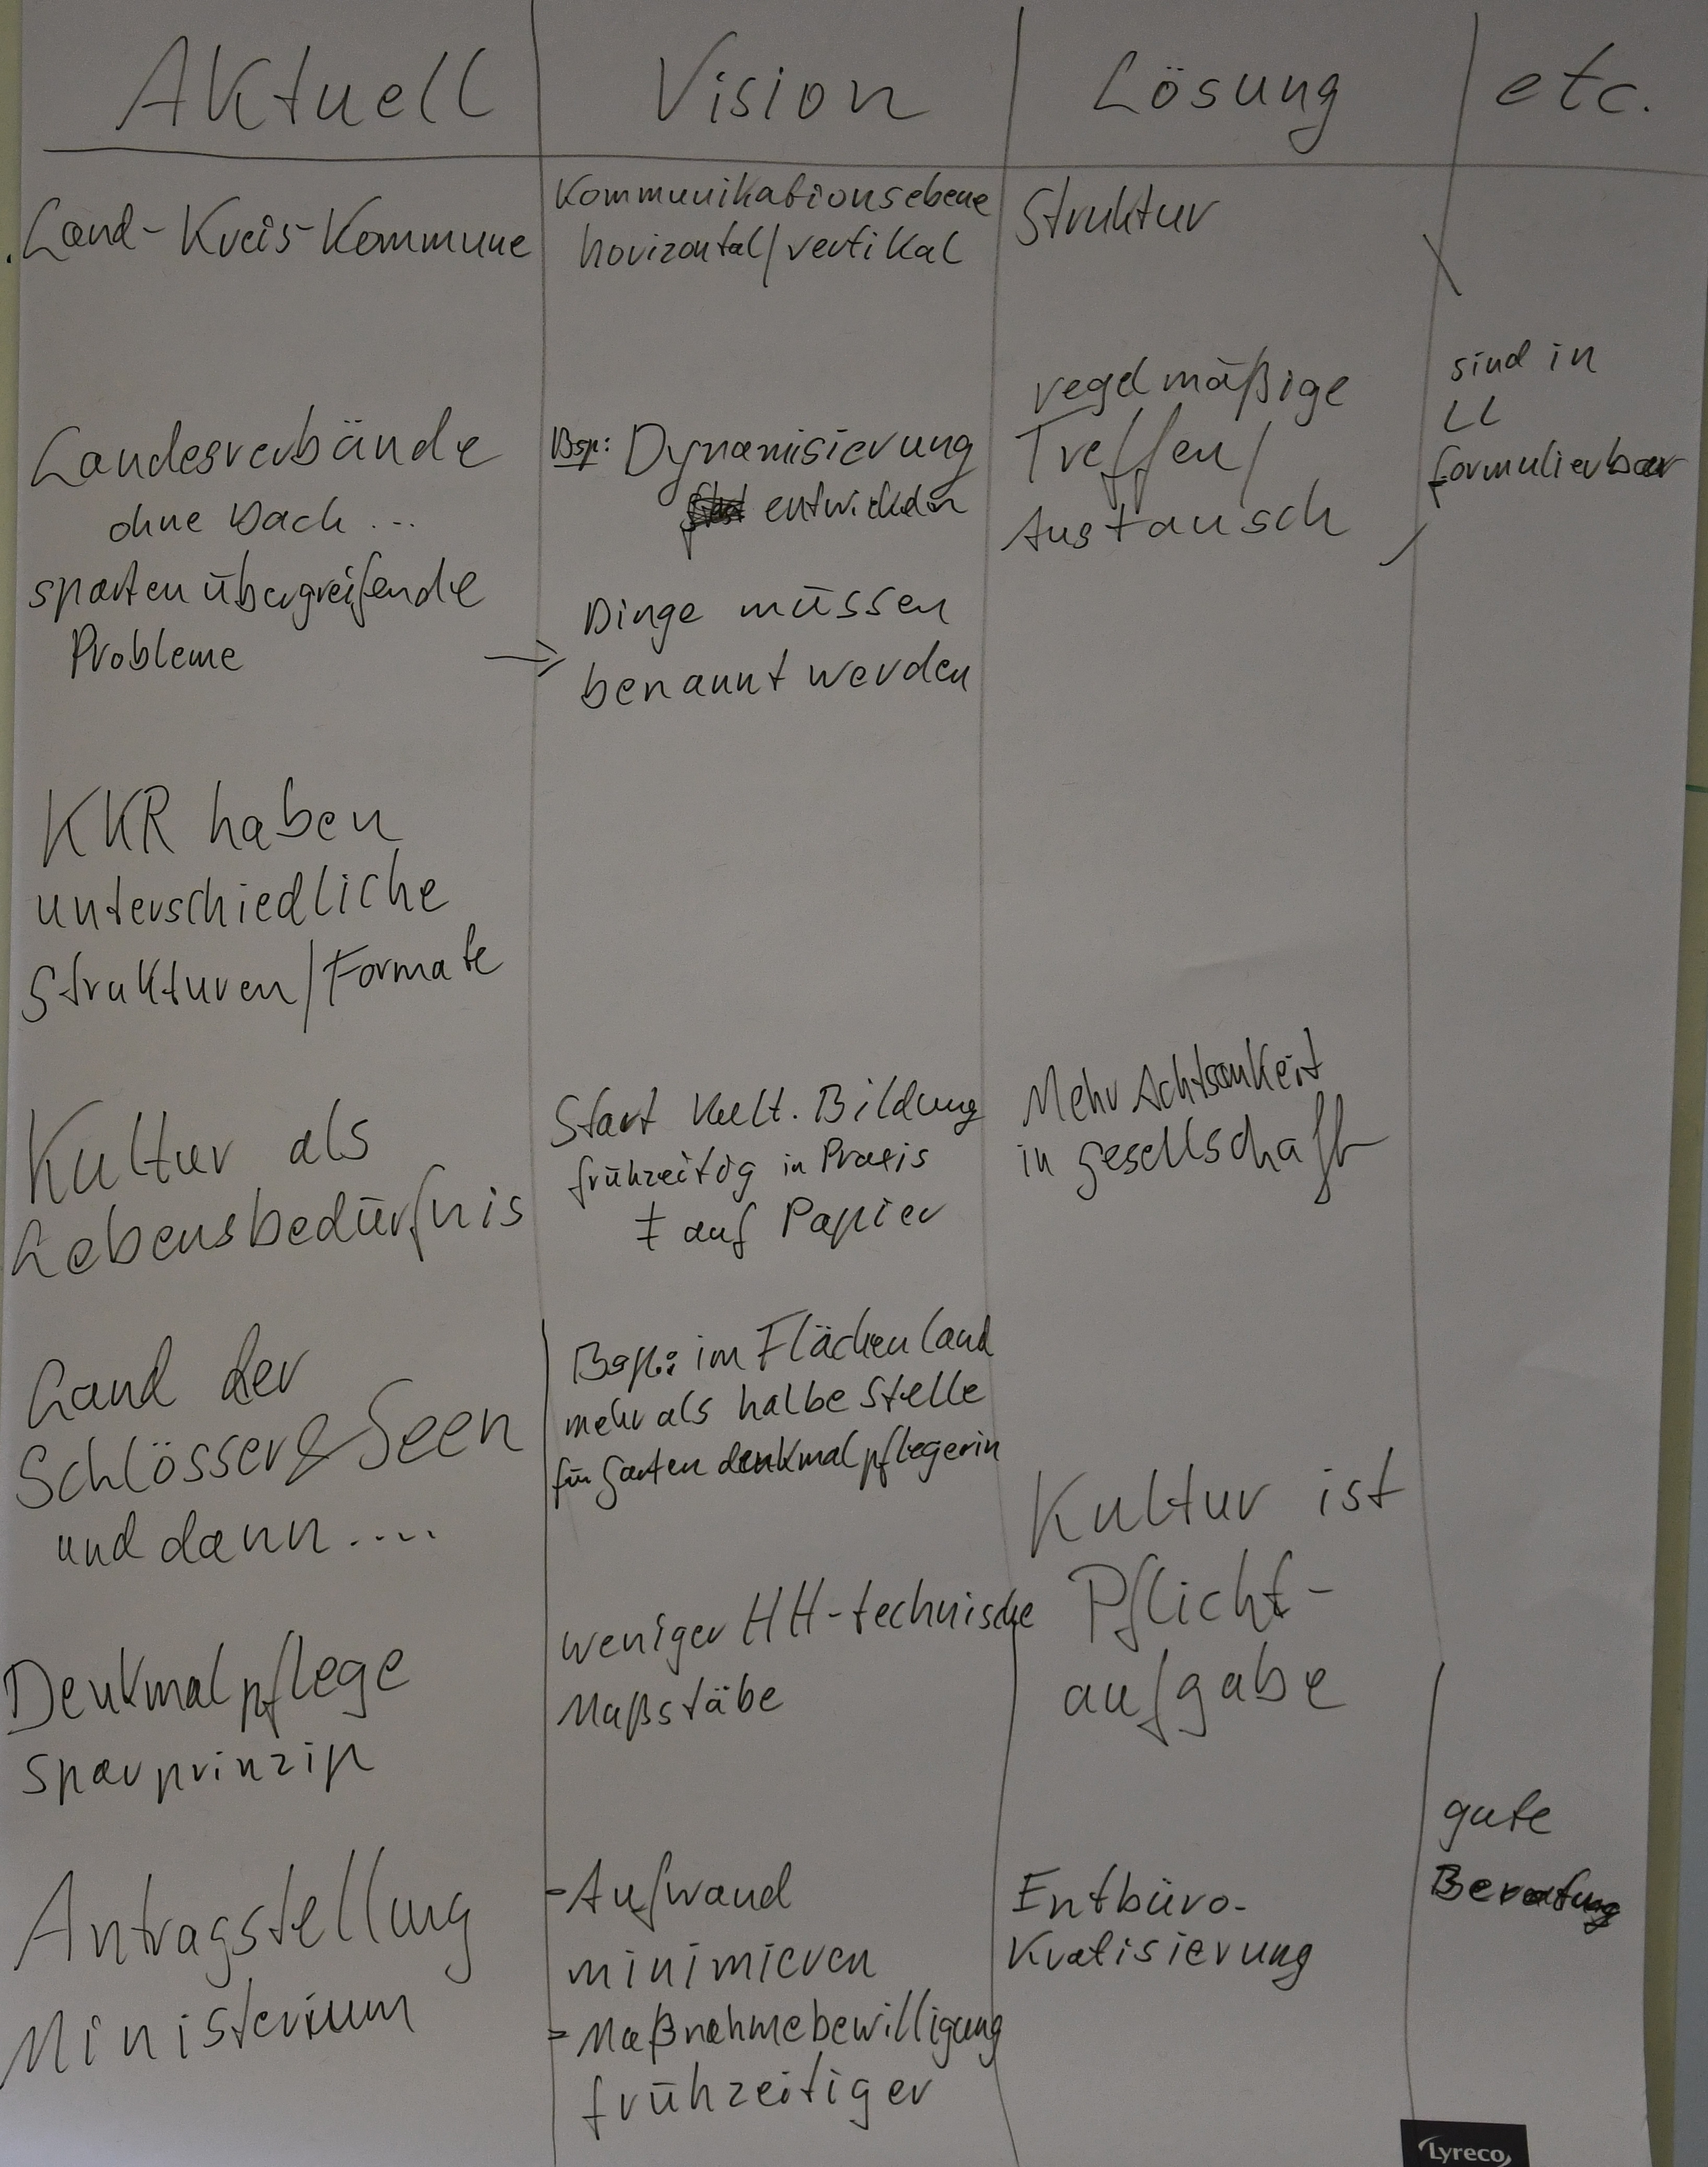 Aktuell Vision Lösung etc.
Land-Kreis-Kommune
Kommunikationsebene
horizontal/vertikal
Struktur
Landesverbände
ohne Dach ...
spartenübergreifende
Probleme
Bsp: Dynamisierung
entwickeln
→ Dinge müssen
benannt werden
regelmäßige
Treffen/
Austausch
sind in
LL
formulierbar
KKR haben
unterschiedliche
Strukturen/Formate
Kultur als
Lebensbedürfnis
Start kult. Bildung
frühzeitig in Praxis
≠ auf Papier
Mehr Achtsamkeit
in Gesellschaft
Land der
Schlösser & Seen
und dann....
Bsp.: im Flächenland
mehr als halbe Stelle
für Gartendenkmalpflegerin
Kultur ist
Pflicht-
aufgabe
Denkmalpflege
Sparprinzip
weniger HH-technische
Maßstäbe
Antragstellung
Ministerium
- Aufwand
minimieren
- Maßnahmebewilligung
frühzeitiger
Entbüro-
kratisierung
gute
Beratung
Lyreco